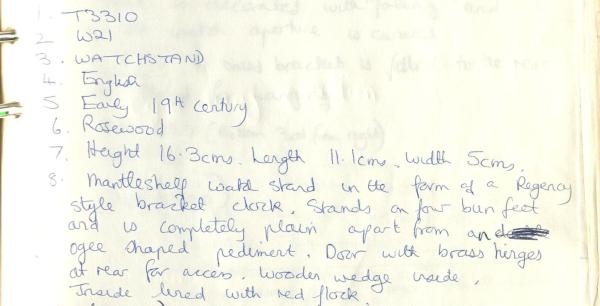 1. T3310
2 W21
3. WATCHSTAND
4. English
5 Early 19th century
6. Rosewood
7. Height 16.3cms. Length 11.1cms. Width 5cms.
8. Mantleshelf watch stand in the form of a Regency
style bracket clock. Stands on four bun feet
and is completely plain apart from an
ogee shaped pediment. Door with brass hinges
at rear for access. Wooden wedge inside.
Inside lined with red flock.